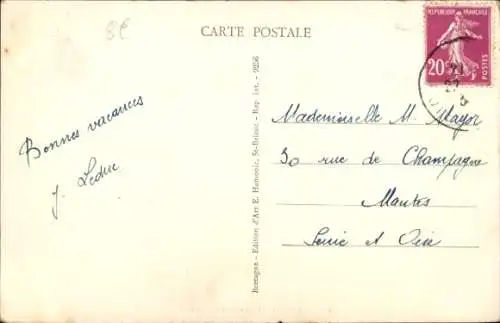 8E
CARTE POSTALE
RÉPUBLIQUE FRANÇAISE
20c
POSTES
Bonnes vacances
J. Leduc
Bretagne - Edition d'Art E. Hamonic, St-Brieuc - Rep. int. - 9256
Mademoiselle M. Mayor
30 rue de Champagne
Mantes
Seine et Oise